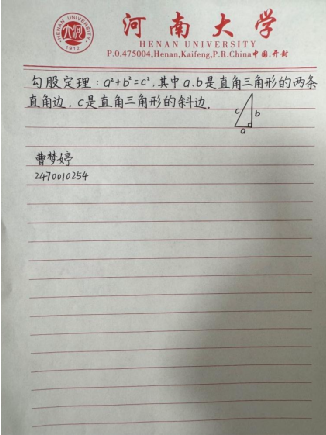 河南大学
HENAN UNIVERSITY
P.O.475004.Henan,Kaifeng,P.R.China中国.开封
勾股定理：a²+b²=c²，其中a.b是直角三角形的两条
直角边，c是直角三角形的斜边．
c b
a
曹梦婷
2470010254